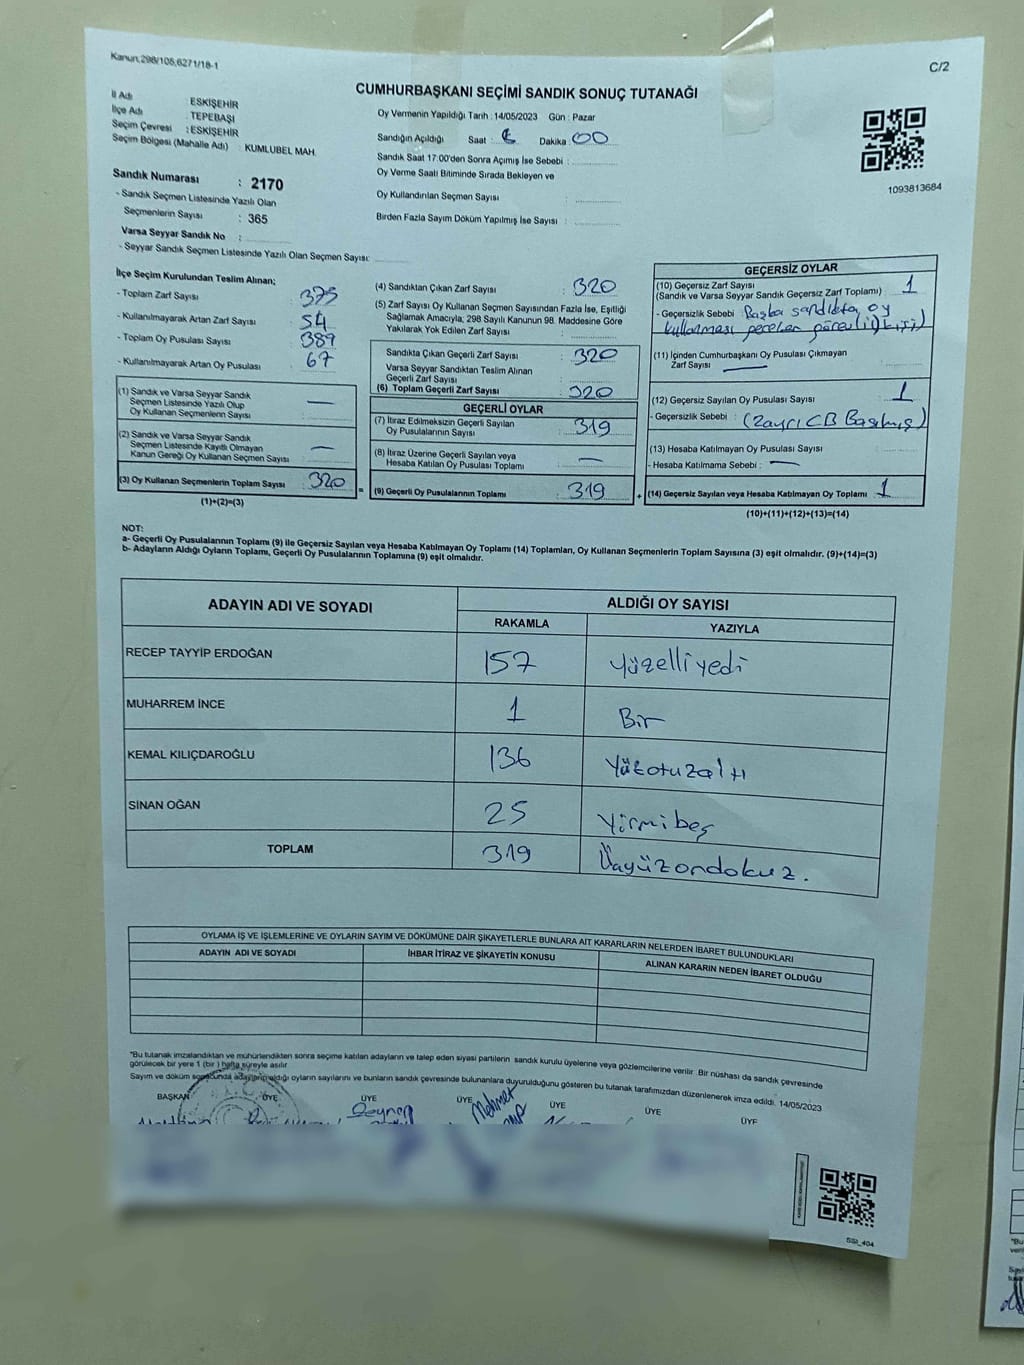 Kanun;298/105;6271/18-1
C/2
CUMHURBAŞKANI SEÇİMİ SANDIK SONUÇ TUTANAĞI
İl Adı : ESKİŞEHİR
İlçe Adı : TEPEBAŞI
Seçim Çevresi : ESKİŞEHİR
Seçim Bölgesi (Mahalle Adı) : KUMLUBEL MAH.
Sandık Numarası : 2170
- Sandık Seçmen Listesinde Yazılı Olan
Seçmenlerin Sayısı : 365
Varsa Seyyar Sandık No :
- Seyyar Sandık Seçmen Listesinde Yazılı Olan Seçmen Sayısı:
Oy Vermenin Yapıldığı Tarih : 14/05/2023 Gün : Pazar
Sandığın Açıldığı Saat : Dakika : 00
Sandık Saat 17:00'den Sonra Açımış İse Sebebi :
Oy Verme Saati Bitiminde Sırada Bekleyen ve
Oy Kullandırılan Seçmen Sayısı :
Birden Fazla Sayım Döküm Yapılmış İse Sayısı :
1093813684
İlçe Seçim Kurulundan Teslim Alınan;
- Toplam Zarf Sayısı : 375
- Kullanılmayarak Artan Zarf Sayısı : 54
- Toplam Oy Pusulası Sayısı : 389
- Kullanılmayarak Artan Oy Pusulası : 67
(1) Sandık ve Varsa Seyyar Sandık
Seçmen Listesinde Yazılı Olup
Oy Kullanan Seçmenlerin Sayısı : —
(2) Sandık ve Varsa Seyyar Sandık
Seçmen Listesinde Kayıtlı Olmayan
Kanun Gereği Oy Kullanan Seçmen Sayısı : —
(3) Oy Kullanan Seçmenlerin Toplam Sayısı : 320
(1)+(2)=(3)
(4) Sandıktan Çıkan Zarf Sayısı : 320
(5) Zarf Sayısı Oy Kullanan Seçmen Sayısından Fazla İse, Eşitliği
Sağlamak Amacıyla; 298 Sayılı Kanunun 98. Maddesine Göre
Yakılarak Yok Edilen Zarf Sayısı :
Sandıkta Çıkan Geçerli Zarf Sayısı : 320
Varsa Seyyar Sandıktan Teslim Alınan
Geçerli Zarf Sayısı :
(6) Toplam Geçerli Zarf Sayısı : 320
GEÇERLİ OYLAR
(7) İtiraz Edilmeksizin Geçerli Sayılan
Oy Pusulalarının Sayısı : 319
(8) İtiraz Üzerine Geçerli Sayılan veya
Hesaba Katılan Oy Pusulası Toplamı : —
= (9) Geçerli Oy Pusulalarının Toplamı : 319
GEÇERSİZ OYLAR
(10) Geçersiz Zarf Sayısı
(Sandık ve Varsa Seyyar Sandık Geçersiz Zarf Toplamı) : 1
- Geçersizlik Sebebi : Başka sandıkta oy
kullanması gereken görevli
(11) İçinden Cumhurbaşkanı Oy Pusulası Çıkmayan
Zarf Sayısı : —
(12) Geçersiz Sayılan Oy Pusulası Sayısı : 1
- Geçersizlik Sebebi : (Zayrı CB Basılmış)
(13) Hesaba Katılmayan Oy Pusulası Sayısı :
- Hesaba Katılmama Sebebi : —
+ (14) Geçersiz Sayılan veya Hesaba Katılmayan Oy Toplamı : 1
(10)+(11)+(12)+(13)=(14)
NOT:
a- Geçerli Oy Pusulalarının Toplamı (9) ile Geçersiz Sayılan veya Hesaba Katılmayan Oy Toplamı (14) Toplamları, Oy Kullanan Seçmenlerin Toplam Sayısına (3) eşit olmalıdır. (9)+(14)=(3)
b- Adayların Aldığı Oyların Toplamı, Geçerli Oy Pusulalarının Toplamına (9) eşit olmalıdır.
ADAYIN ADI VE SOYADI
ALDIĞI OY SAYISI
RAKAMLA YAZIYLA
RECEP TAYYİP ERDOĞAN 157 Yüzelliyedi
MUHARREM İNCE 1 Bir
KEMAL KILIÇDAROĞLU 136 Yüzotuzaltı
SİNAN OĞAN 25 Yirmibeş
TOPLAM 319 Üçyüzondokuz.
OYLAMA İŞ VE İŞLEMLERİNE VE OYLARIN SAYIM VE DÖKÜMÜNE DAİR ŞİKAYETLERLE BUNLARA AİT KARARLARIN NELERDEN İBARET BULUNDUKLARI
ADAYIN ADI VE SOYADI İHBAR İTİRAZ VE ŞİKAYETİN KONUSU ALINAN KARARIN NEDEN İBARET OLDUĞU
"Bu tutanak imzalandıktan ve mühürlendikten sonra seçime katılan adayların ve talep eden siyasi partilerin sandık kurulu üyelerine veya gözlemcilerine verilir. Bir nüshası da sandık çevresinde
görülecek bir yere 1 (bir) hafta süreyle asılır.
Sayım ve döküm sonucunda adayların aldığı oyların sayılarını ve bunların sandık çevresinde bulunanlara duyurulduğunu gösteren bu tutanak tarafımızdan düzenlenerek imza edildi. 14/05/2023
BAŞKAN ÜYE ÜYE ÜYE ÜYE ÜYE ÜYE
Zeynep Mehmet
SSI_404